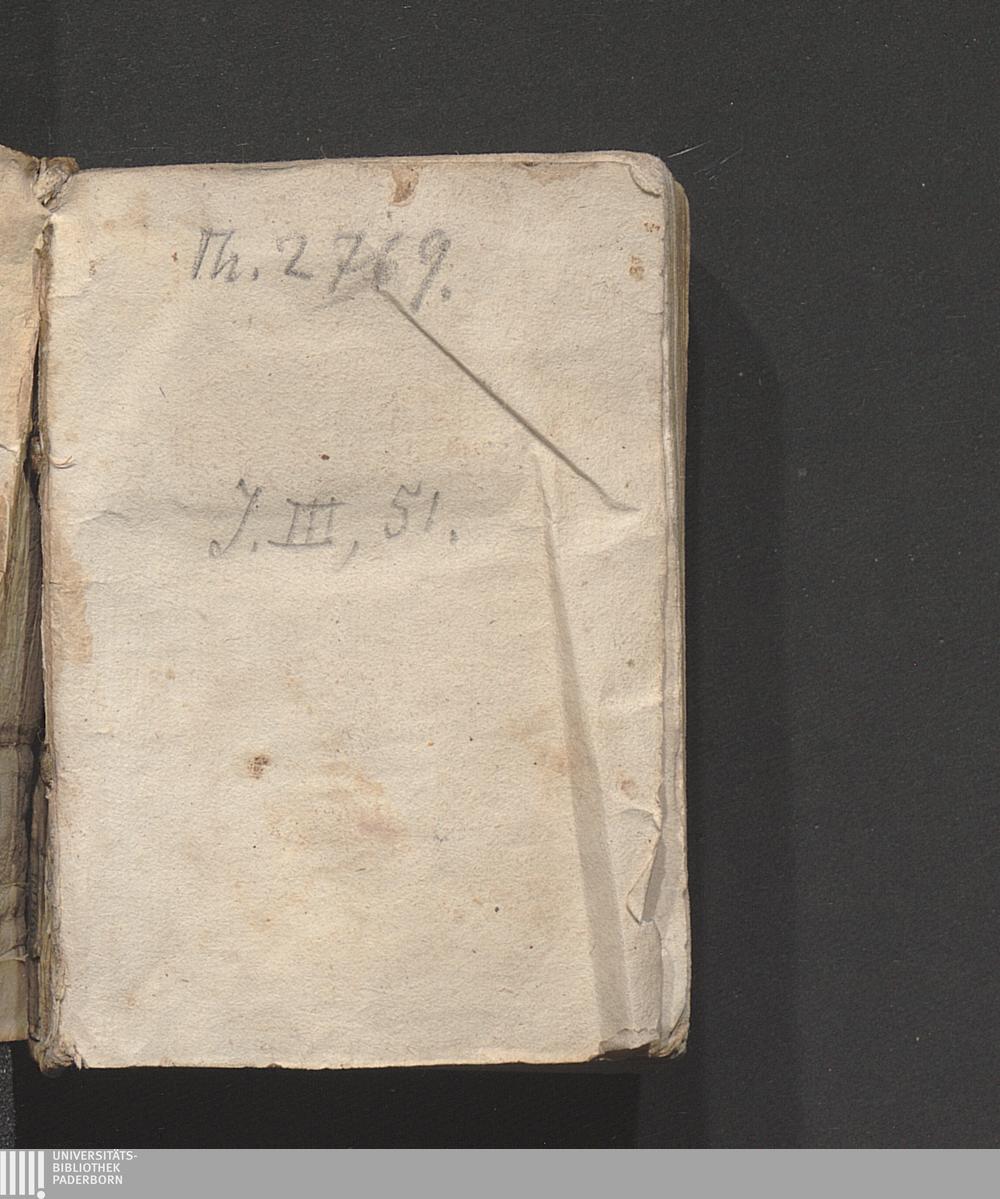 Th. 2769.
J. III, 51.
UNIVERSITÄTS-
BIBLIOTHEK
PADERBORN